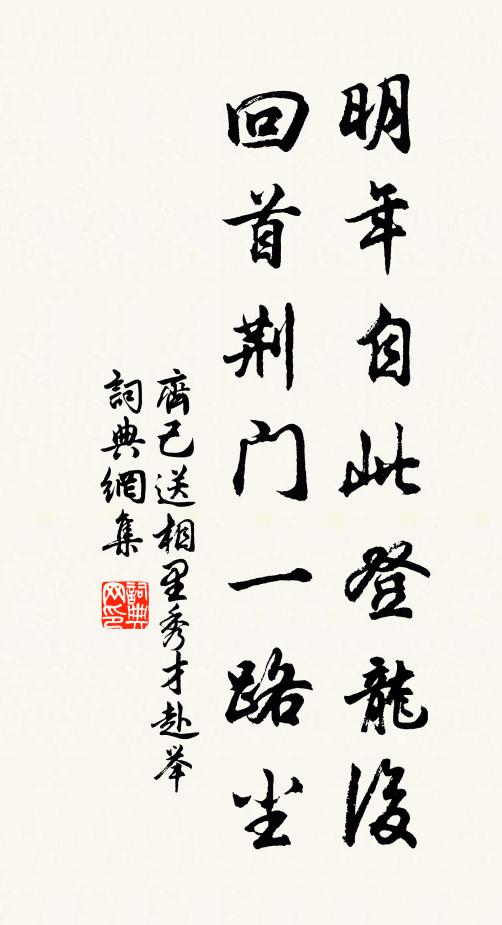 明年自此登龍後
回首荆門一路尘
齊己送相里秀才赴举
詞典網集
詞典网印